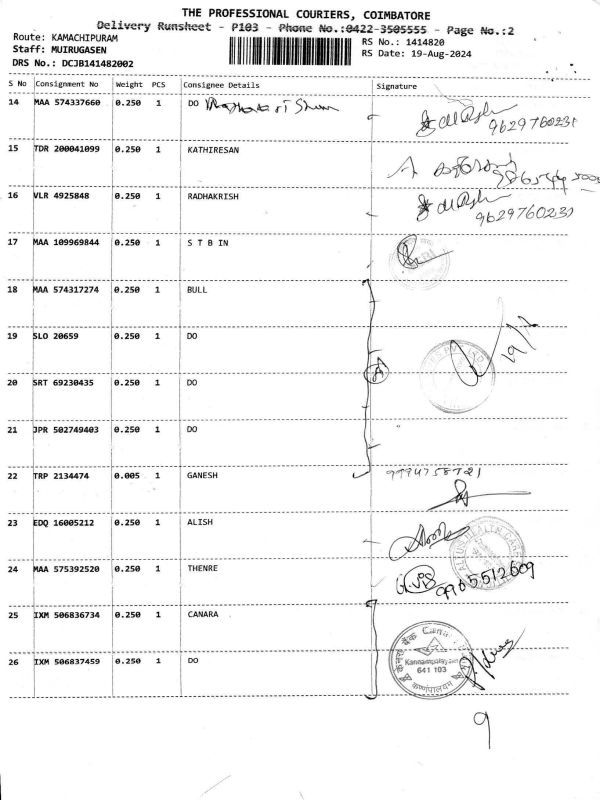 THE PROFESSIONAL COURIERS, COIMBATORE
Delivery Runsheet - P103 - Phone No.:0422-3505555 - Page No.:2
Route: KAMACHIPURAM
RS No.: 1414820
Staff: MUIRUGASEN
RS Date: 19-Aug-2024
DRS No.: DCJB141482002
S No Consignment No Weight PCS Consignee Details Signature
14 MAA 574337660 0.250 1 DO
9629760231
15 TDR 200041099 0.250 1 KATHIRESAN
16 VLR 4925848 0.250 1 RADHAKRISH
9629760231
17 MAA 109969844 0.250 1 S T B IN
18 MAA 574317274 0.250 1 BULL
19 SLO 20659 0.250 1 DO
19/
20 SRT 69230435 0.250 1 DO
21 JPR 502749403 0.250 1 DO
22 TRP 2134474 0.005 1 GANESH
9994758721
23 EDQ 16005212 0.250 1 ALISH
HEALTH CARE
24 MAA 575392520 0.250 1 THENRE
9905512609
25 IXM 506836734 0.250 1 CANARA
ಕೆನರಾ बैंक Canara
Kannampalayam
641 103
कण्णंपालयम
26 IXM 506837459 0.250 1 DO
9